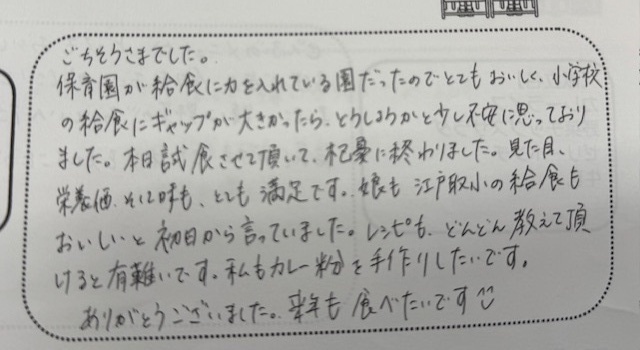 ごちそうさまでした。
保育園が給食に力を入れている園だったのでとてもおいしく、小学校
の給食にギャップが大きかったら、どうしようかと少し不安に思っており
ました。本日試食させて頂いて、杞憂に終わりました。見た目、
栄養価、そして味も、とても満足です。娘も江戸取小の給食も
おいしいと初日から言っていました。レシピも、どんどん教えて頂
けると有難いです。私もカレー粉を手作りしたいです。
ありがとうございました。来年も食べたいです